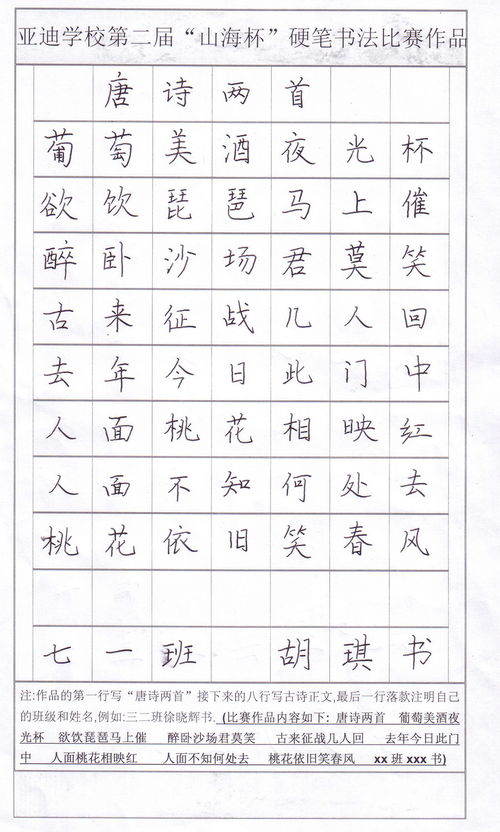 亚迪学校第二届“山海杯”硬笔书法比赛作品
唐诗两首
葡萄美酒夜光杯
欲饮琵琶马上催
醉卧沙场君莫笑
古来征战几人回
去年今日此门中
人面桃花相映红
人面不知何处去
桃花依旧笑春风
七一班 胡琪书
注:作品的第一行写“唐诗两首”接下来的八行写古诗正文,最后一行落款注明自己
的班级和姓名,例如:三二班徐晓辉书. (比赛作品内容如下: 唐诗两首 葡萄美酒夜
光杯 欲饮琵琶马上催 醉卧沙场君莫笑 古来征战几人回 去年今日此门
中 人面桃花相映红 人面不知何处去 桃花依旧笑春风 xx 班 xxx 书)